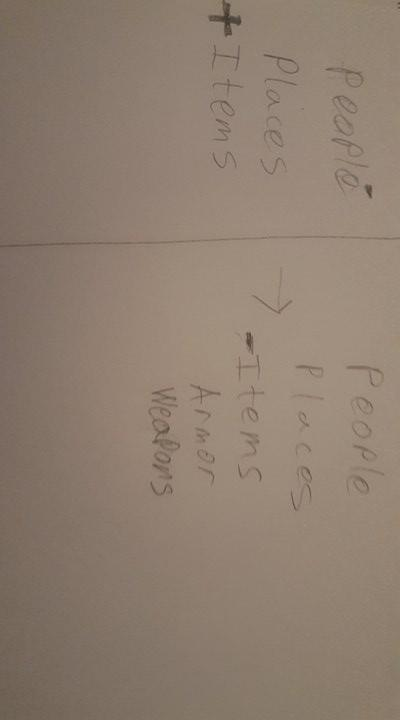 People
Places
+ Items
→
People
Places
- Items
Armor
Weapons